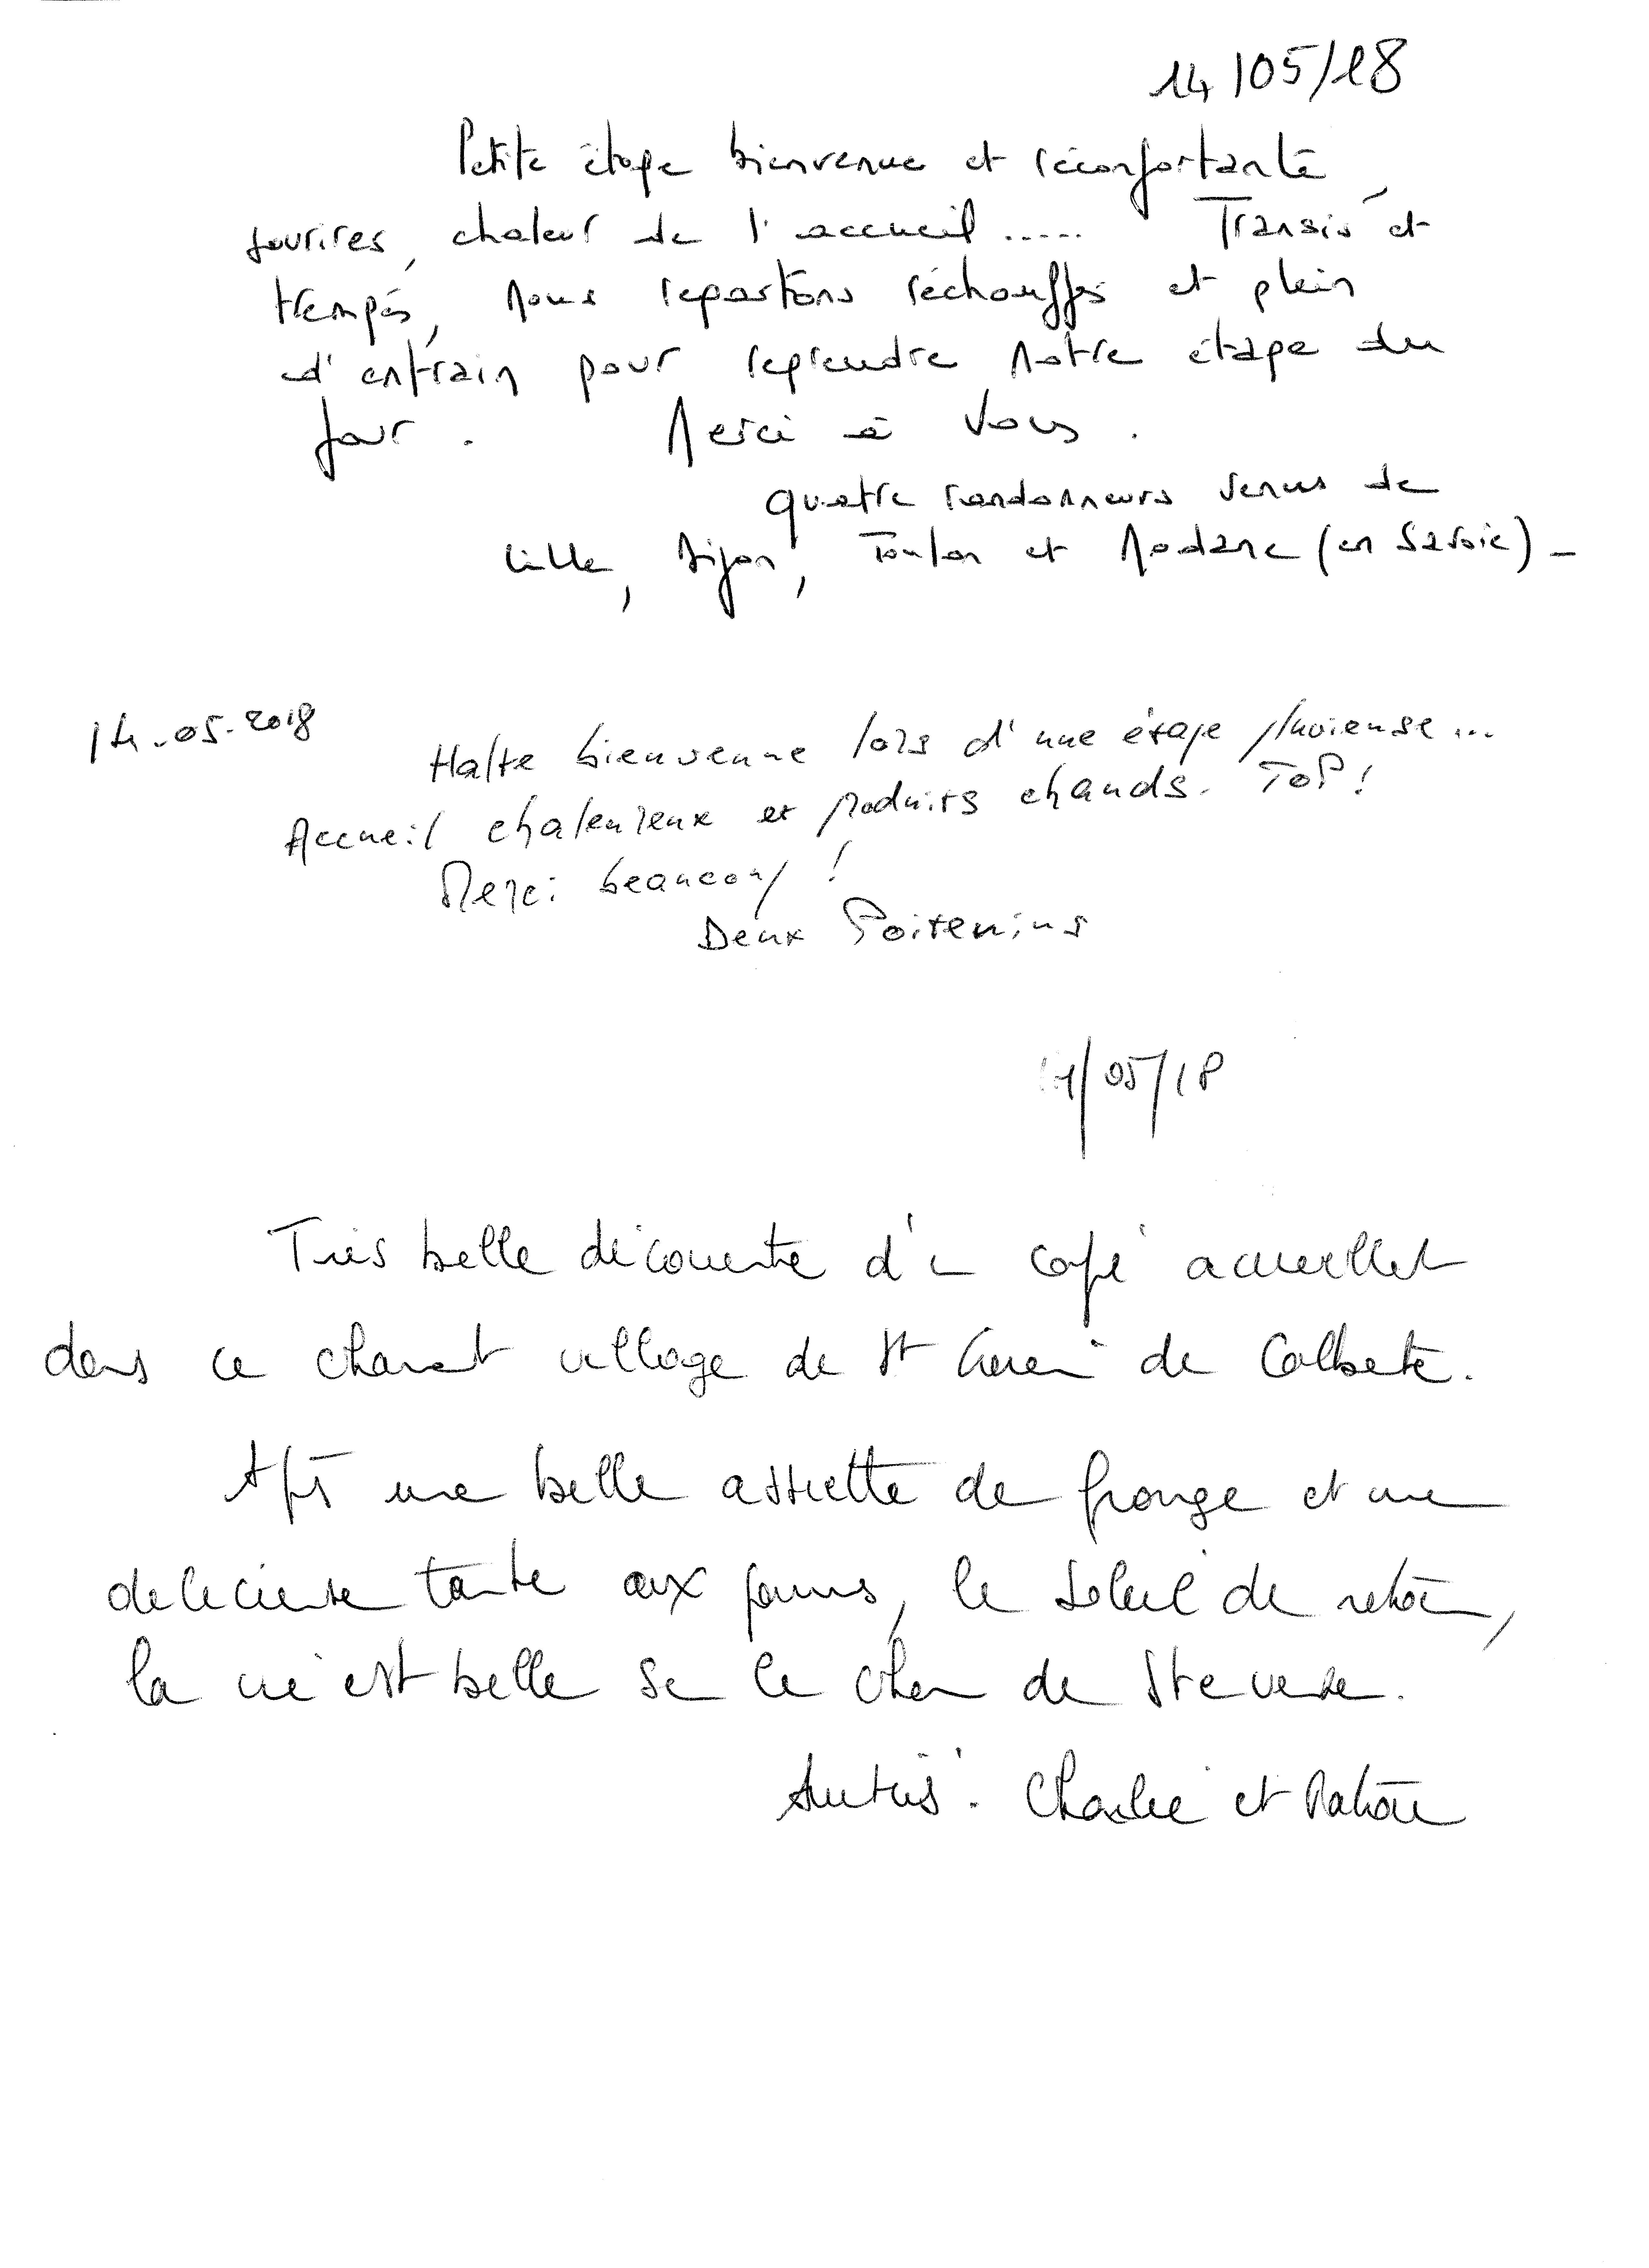 14/05/18
Petite étape bienvenue et réconfortante,
sourires, chaleur de l'accueil ..... Transis et
trempés, nous repartons réchauffés et plein
d'entrain pour reprendre notre étape du
jour. Merci à vous.
quatre randonneurs venus de
Lille, Dijon, Toulon et Modane (en Savoie) -
14.05.2018
Halte bienvenue lors d'une étape pluvieuse...
Accueil chaleureux et produits chauds. TOP!
Merci beaucoup !
Deux Poitevins
/05/18
Très belle découverte d'un café accueillant
dans ce charmant village de St de Calberte.
Après une belle assiette de fromage et une
delicieuse tarte aux , le soleil de retour,
la vie est belle sur le chemin de Stevenson.
Charlie et